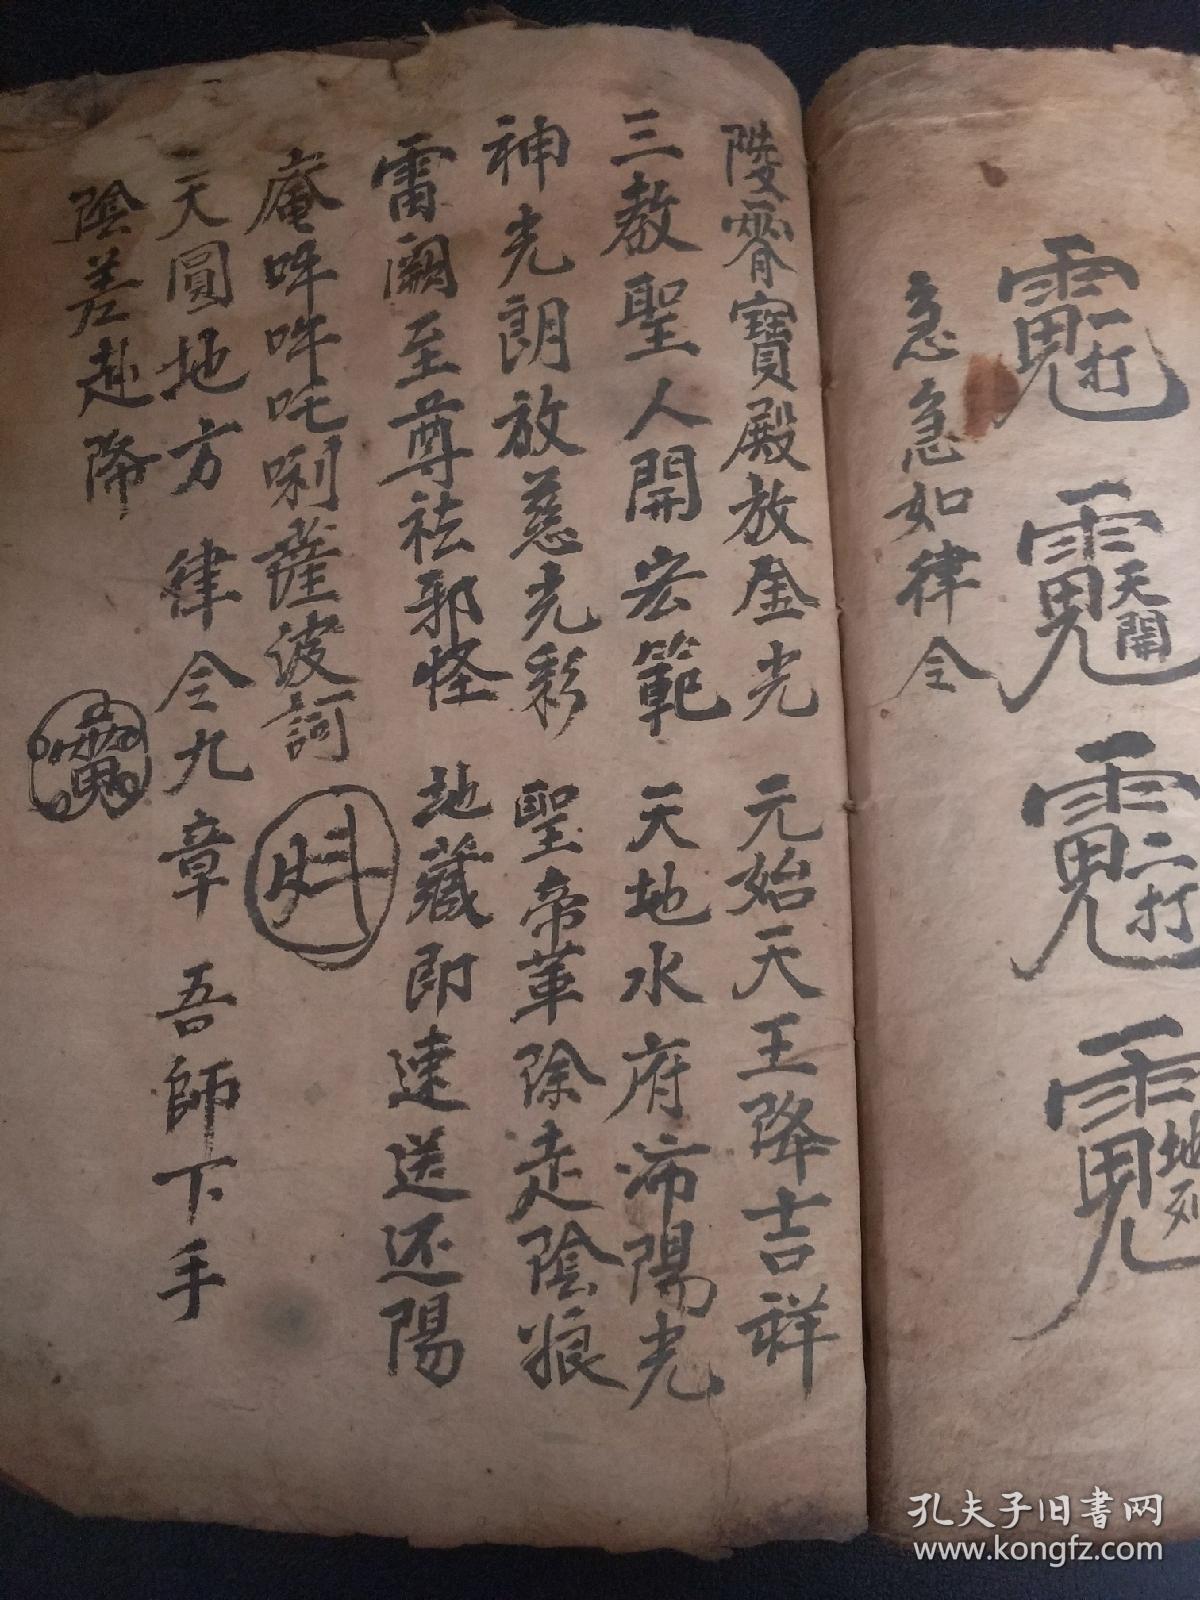 一打
天開
二打
地列
急急如律令
陵霄寶殿放金光 元始天王降吉祥
三教聖人開宏範 天地水府沛陽光
神光朗放慈光彩 聖帝革除走陰狼
雷闕至尊祛邪怪 地藏即速送还陽
庵吽吽吒唎薩波訶
天圓地方 律令九章 吾師下手
陰差赴降
孔夫子旧書网
www.kongfz.com